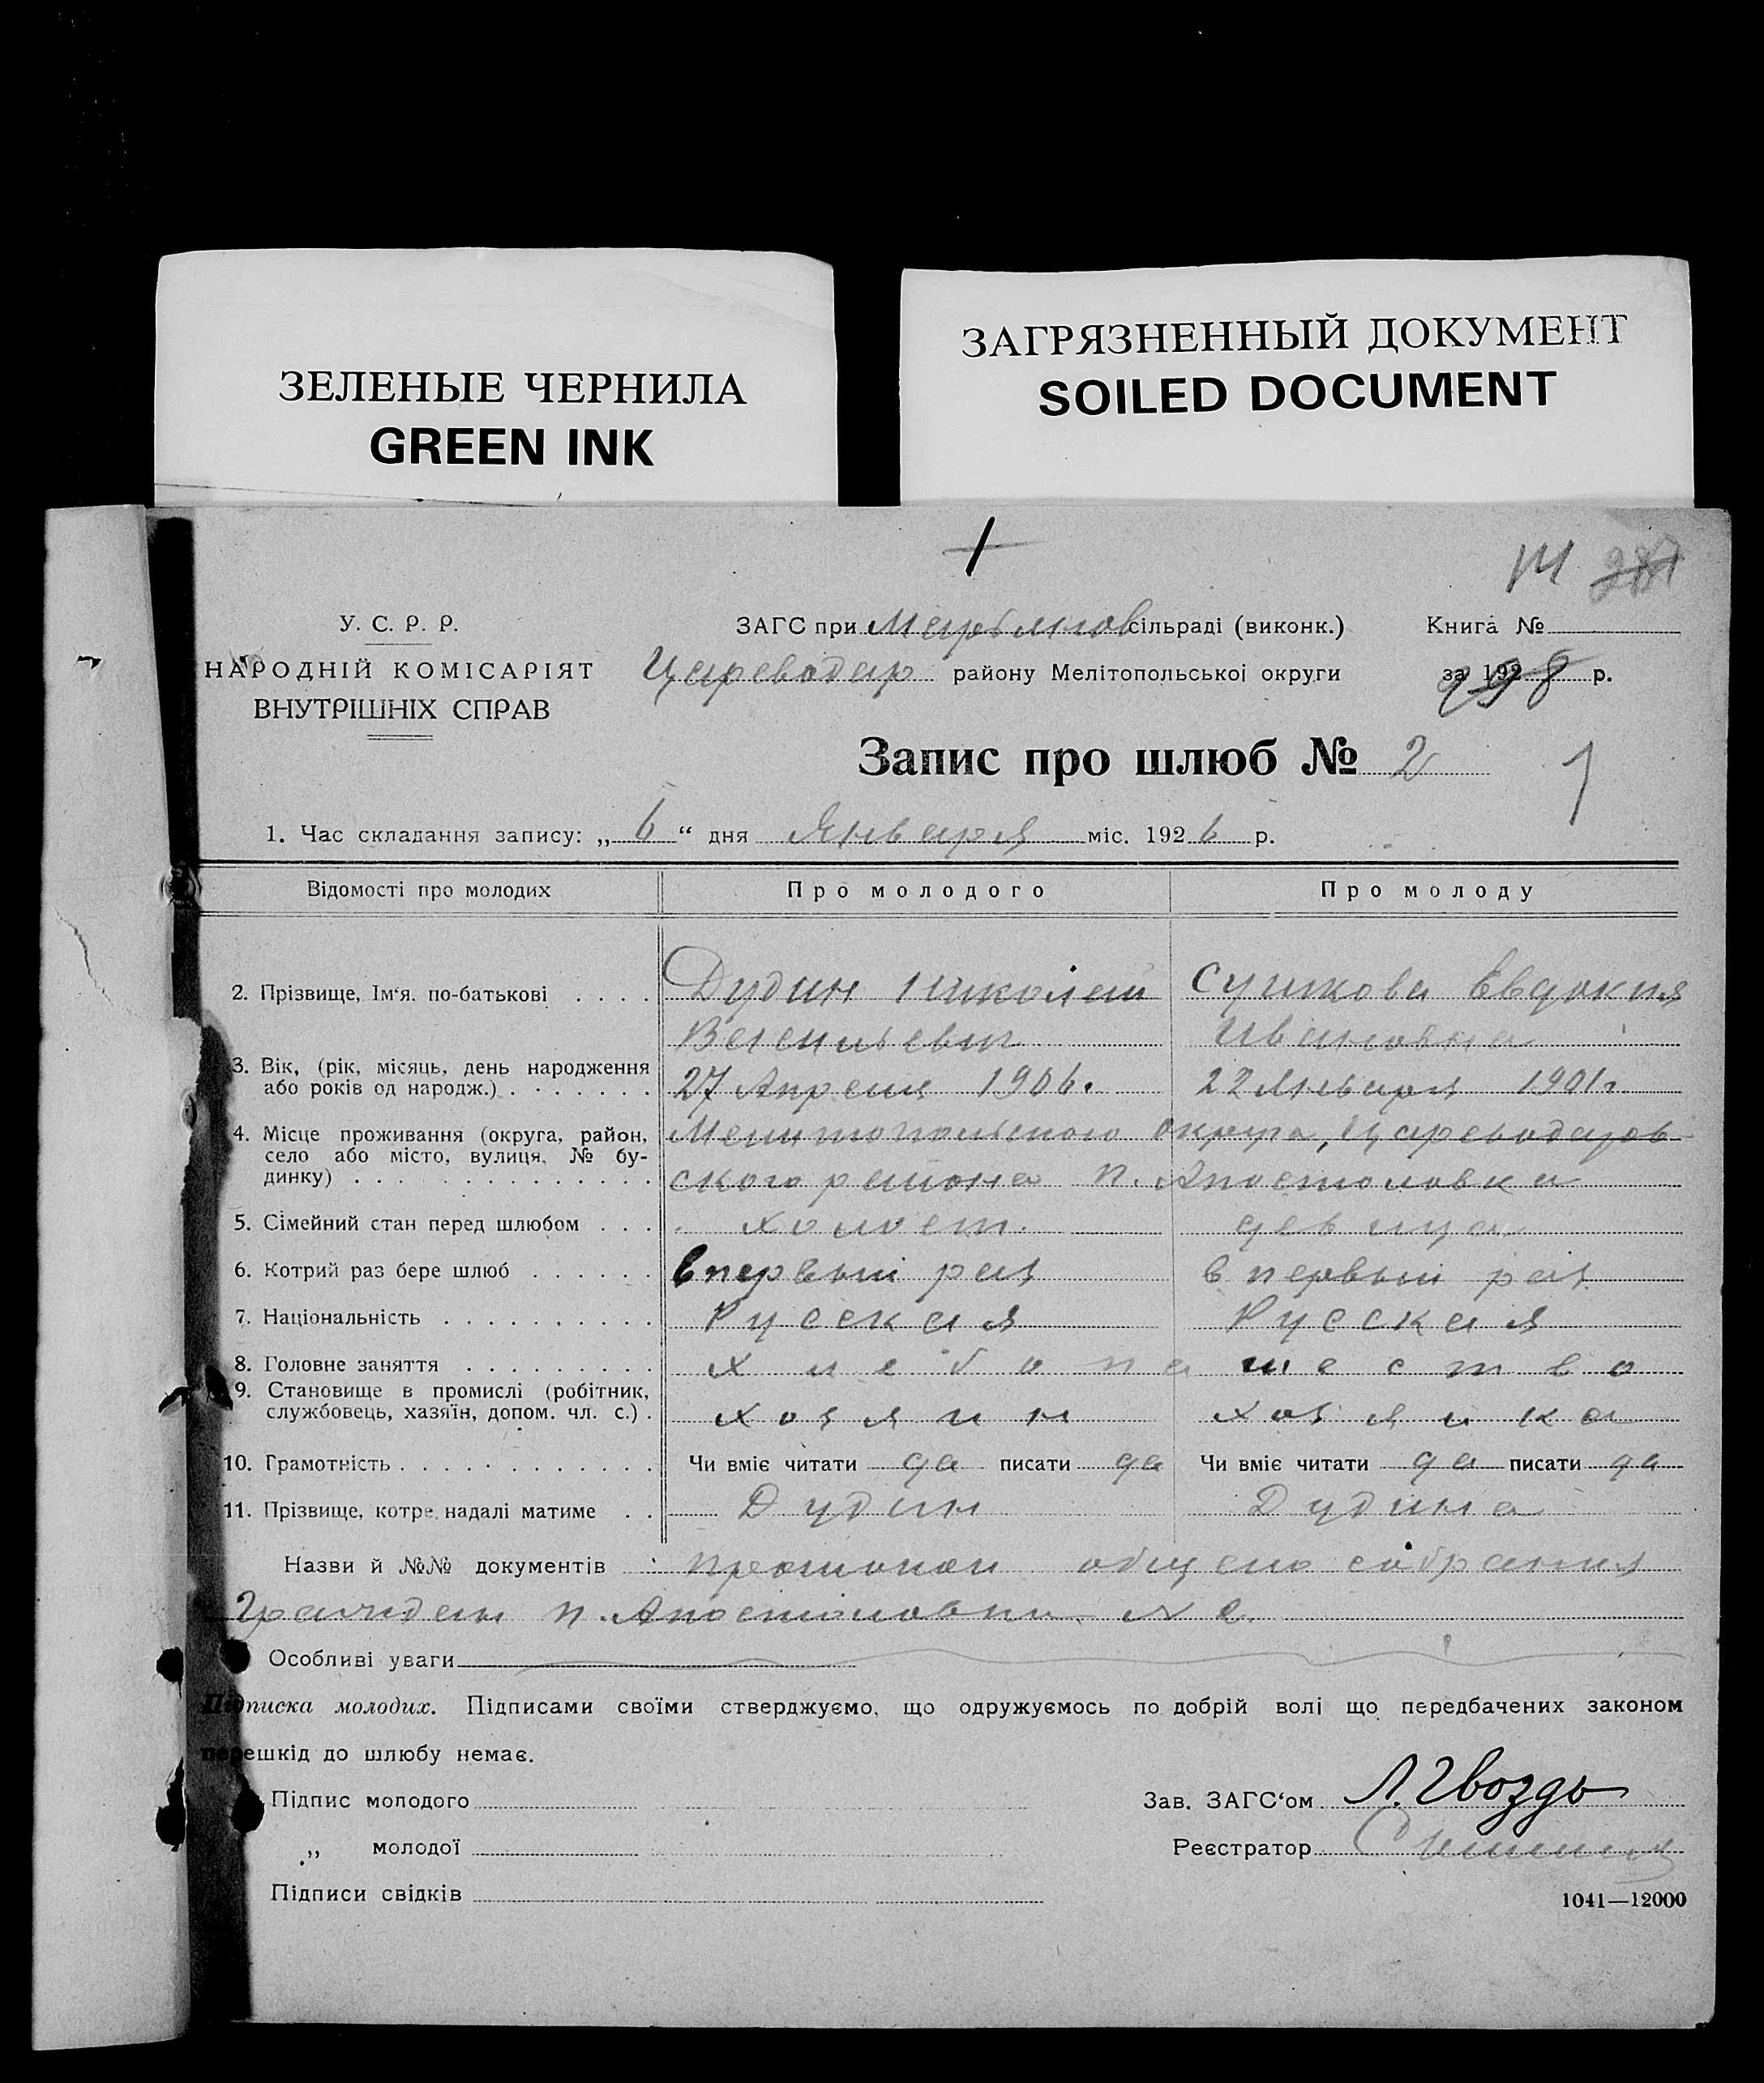 ЗЕЛЕНЫЕ ЧЕРНИЛА
GREEN INK
ЗАГРЯЗНЕННЫЙ ДОКУМЕНТ
SOILED DOCUMENT
У. С. Р. Р.
НАРОДНІЙ КОМІСАРІЯТ
ВНУТРІШНІХ СПРАВ
ЗАГС при сільраді (виконк.)
Цареводар району Мелітопольської округи
Книга №
за 1928 р.
Запис про шлюб № 2
1
1. Час складання запису: „ 6 “ дня Января міс. 1926 р.
Відомості про молодих Про молодого Про молоду
2. Прізвище, Ім‘я. по-батькові . . . . Дудин Николай Сушкова Евдокия
Васильевич Ивановна
3. Вік, (рік, місяць, день народження
або років од народж.) . . . . . . . 27 Апреля 1906. 22 Января 1901.
4. Місце проживання (округа, район, Мелитопольского Округа, Цареводаров
село або місто, вулиця, № бу-
динку) . . . . . . . . . . . . . . ского района п. Апостоловка
5. Сімейний стан перед шлюбом . . . холост. девица
6. Котрий раз бере шлюб . . . . . . в первый раз в первый раз
7. Національність . . . . . . . . . . Русская Русская
8. Головне заняття . . . . . . . . . хлебопашество
9. Становище в промислі (робітник,
службовець, хазяїн, допом. чл. с.) . хозяин хозяика
10. Грамотність . . . . . . . . . . . . Чи вміє читати да писати да Чи вміє читати да писати да
11. Прізвище, котре надалі матиме . . Дудин Дудина
Назви й №№ документів протокол общего собрания
Граждан п. Апостоловки № 2.
Особливі уваги
Підписка молодих. Підписами своїми стверджуємо, що одружуємось по добрій волі що передбачених законом
перешкід до шлюбу немає.
Підпис молодого
„ молодої
Підписи свідків
Зав. ЗАГС‘ом Л. Гвоздь
Реєстратор
1041—12000